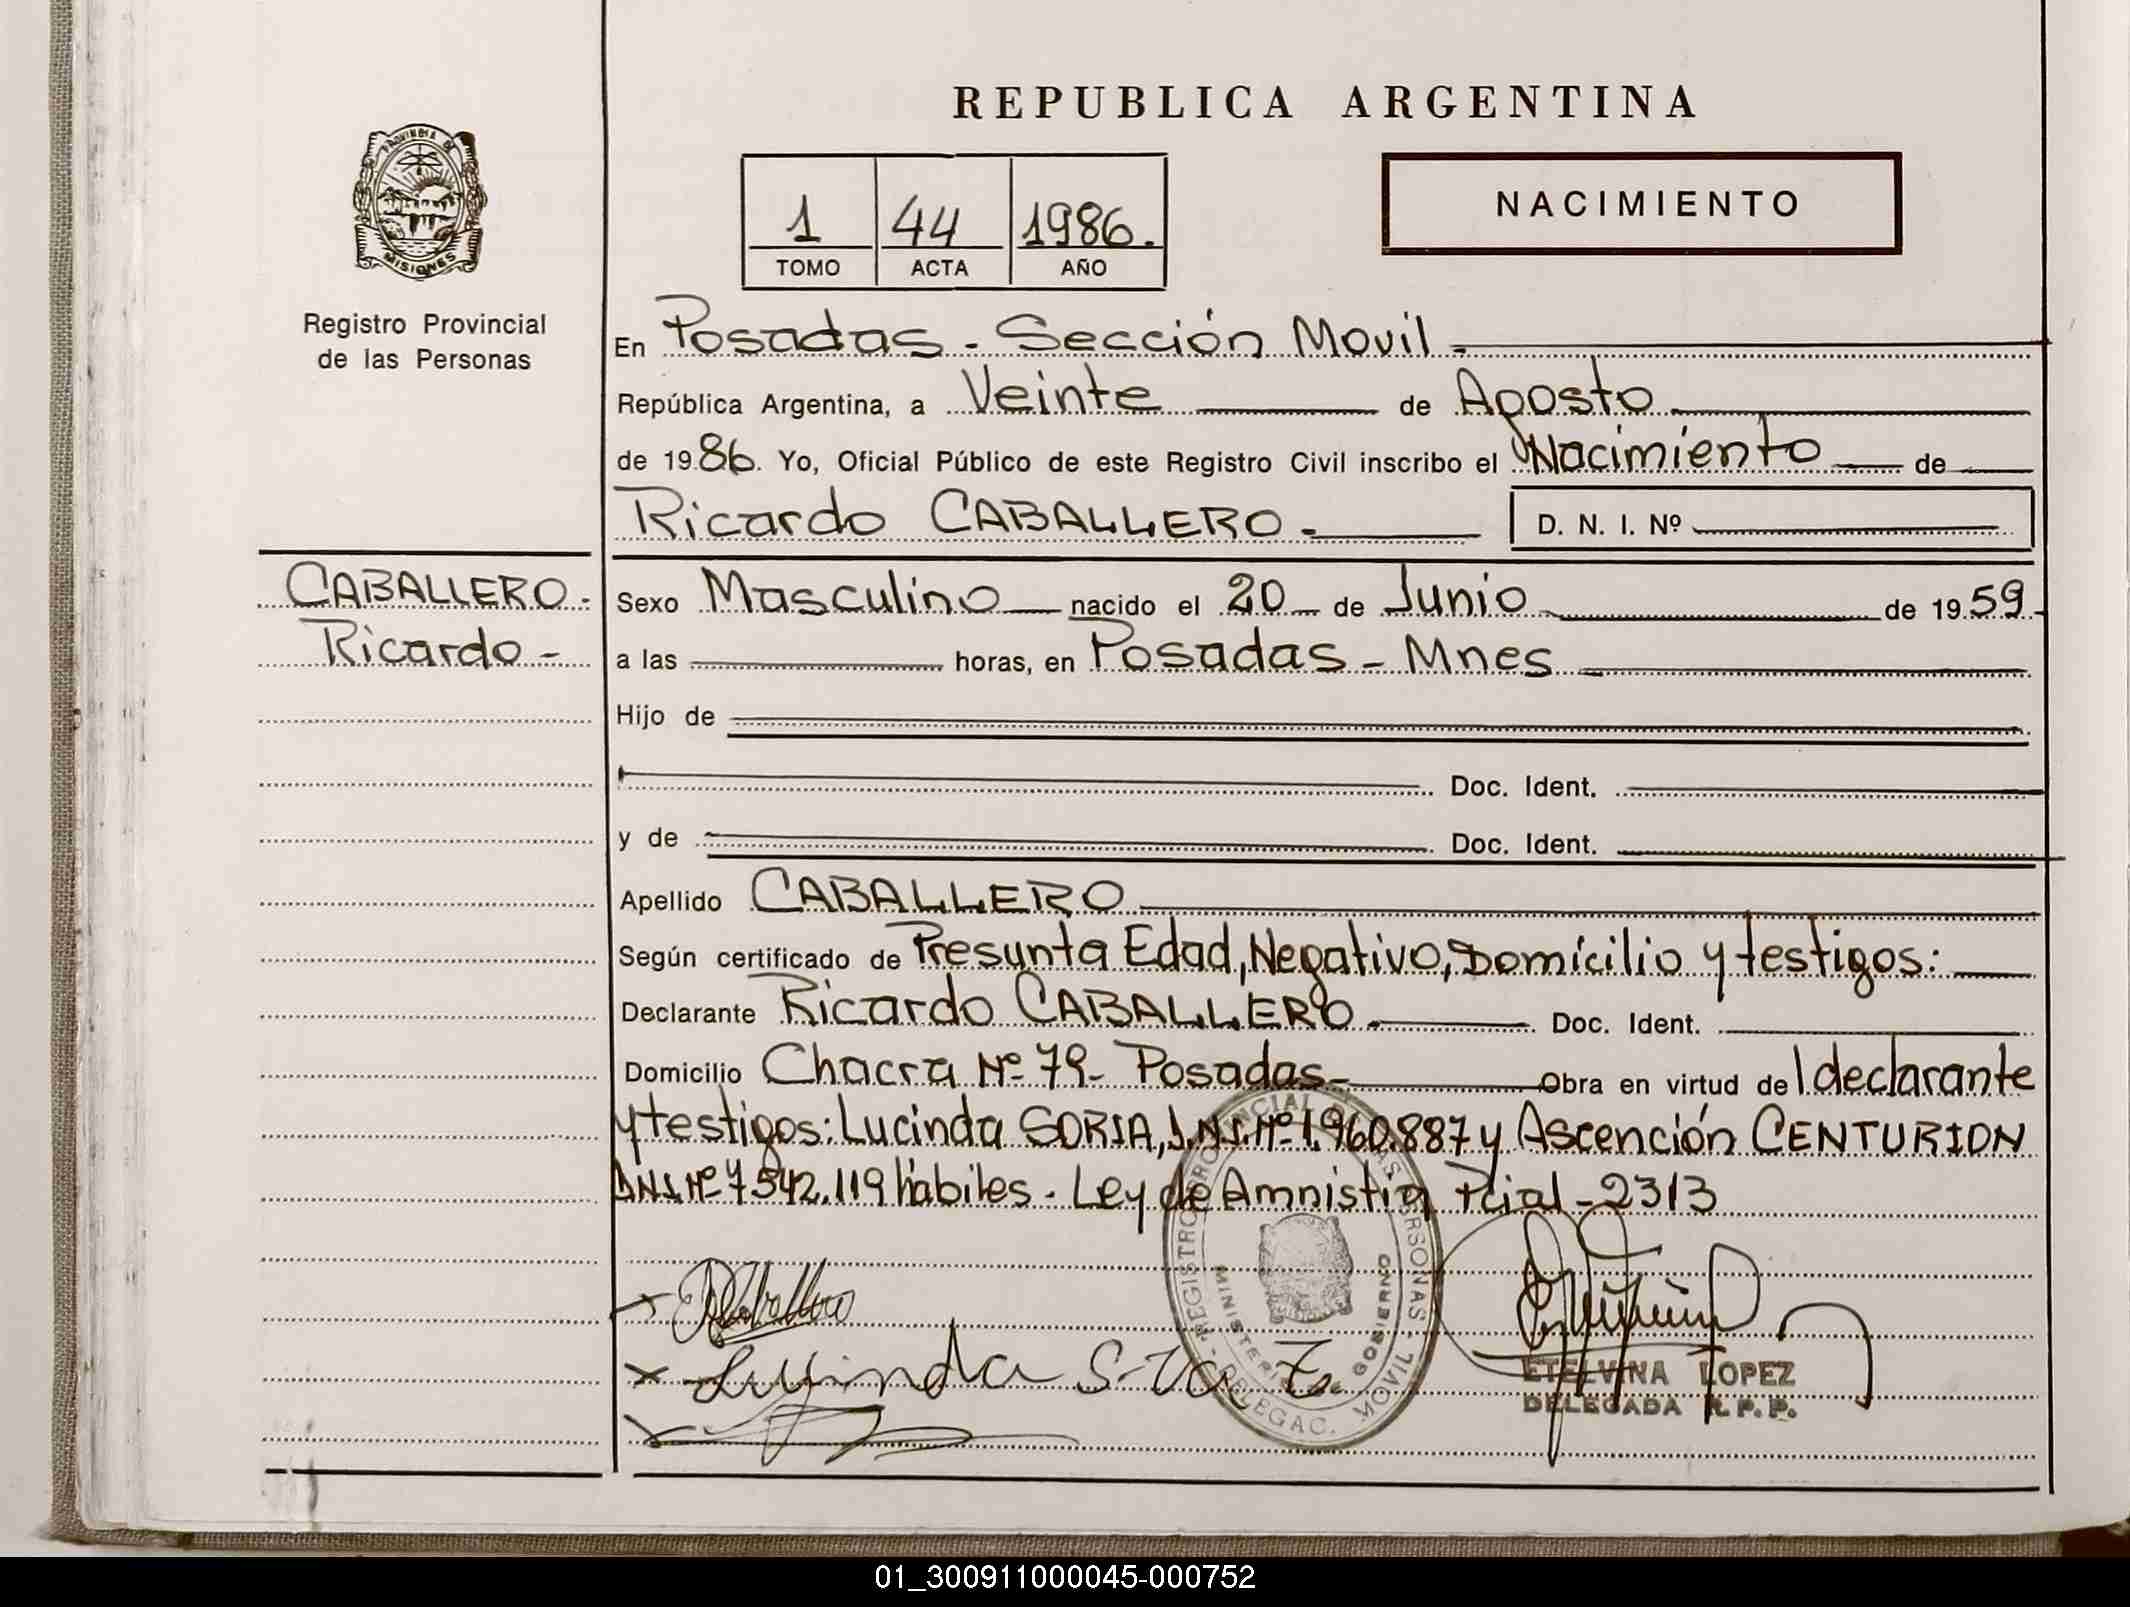 REPUBLICA ARGENTINA
PROVINCIA DE
MISIONES
Registro Provincial
de las Personas
1 44 1986.
TOMO ACTA AÑO
NACIMIENTO
En Posadas - Sección Movil -
República Argentina, a Veinte de Agosto
de 1986. Yo, Oficial Público de este Registro Civil inscribo el Nacimiento de
Ricardo CABALLERO - D. N. I. Nº
CABALLERO -
Ricardo -
Sexo Masculino nacido el 20 de Junio de 1959.
a las horas, en Posadas - Mnes
Hijo de
Doc. Ident.
y de Doc. Ident.
Apellido CABALLERO
Según certificado de Presunta Edad, Negativo, Domicilio y testigos:
Declarante Ricardo CABALLERO - Doc. Ident.
Domicilio Chacra Nº 79 - Posadas - Obra en virtud del declarante
y testigos: Lucinda SORIA, D.N.I. Nº 1.960.887 y Ascención CENTURION
D.N.I. Nº 7.542.119 hábiles - Ley de Amnistia Pcial - 2313
REGISTRO PROVINCIAL DE LAS PERSONAS
MINISTERIO DE GOBIERNO
DELEGAC. MOVIL
RCaballero
Lucinda
ETELVINA LOPEZ
DELEGADA R.P.P.
01_300911000045-000752